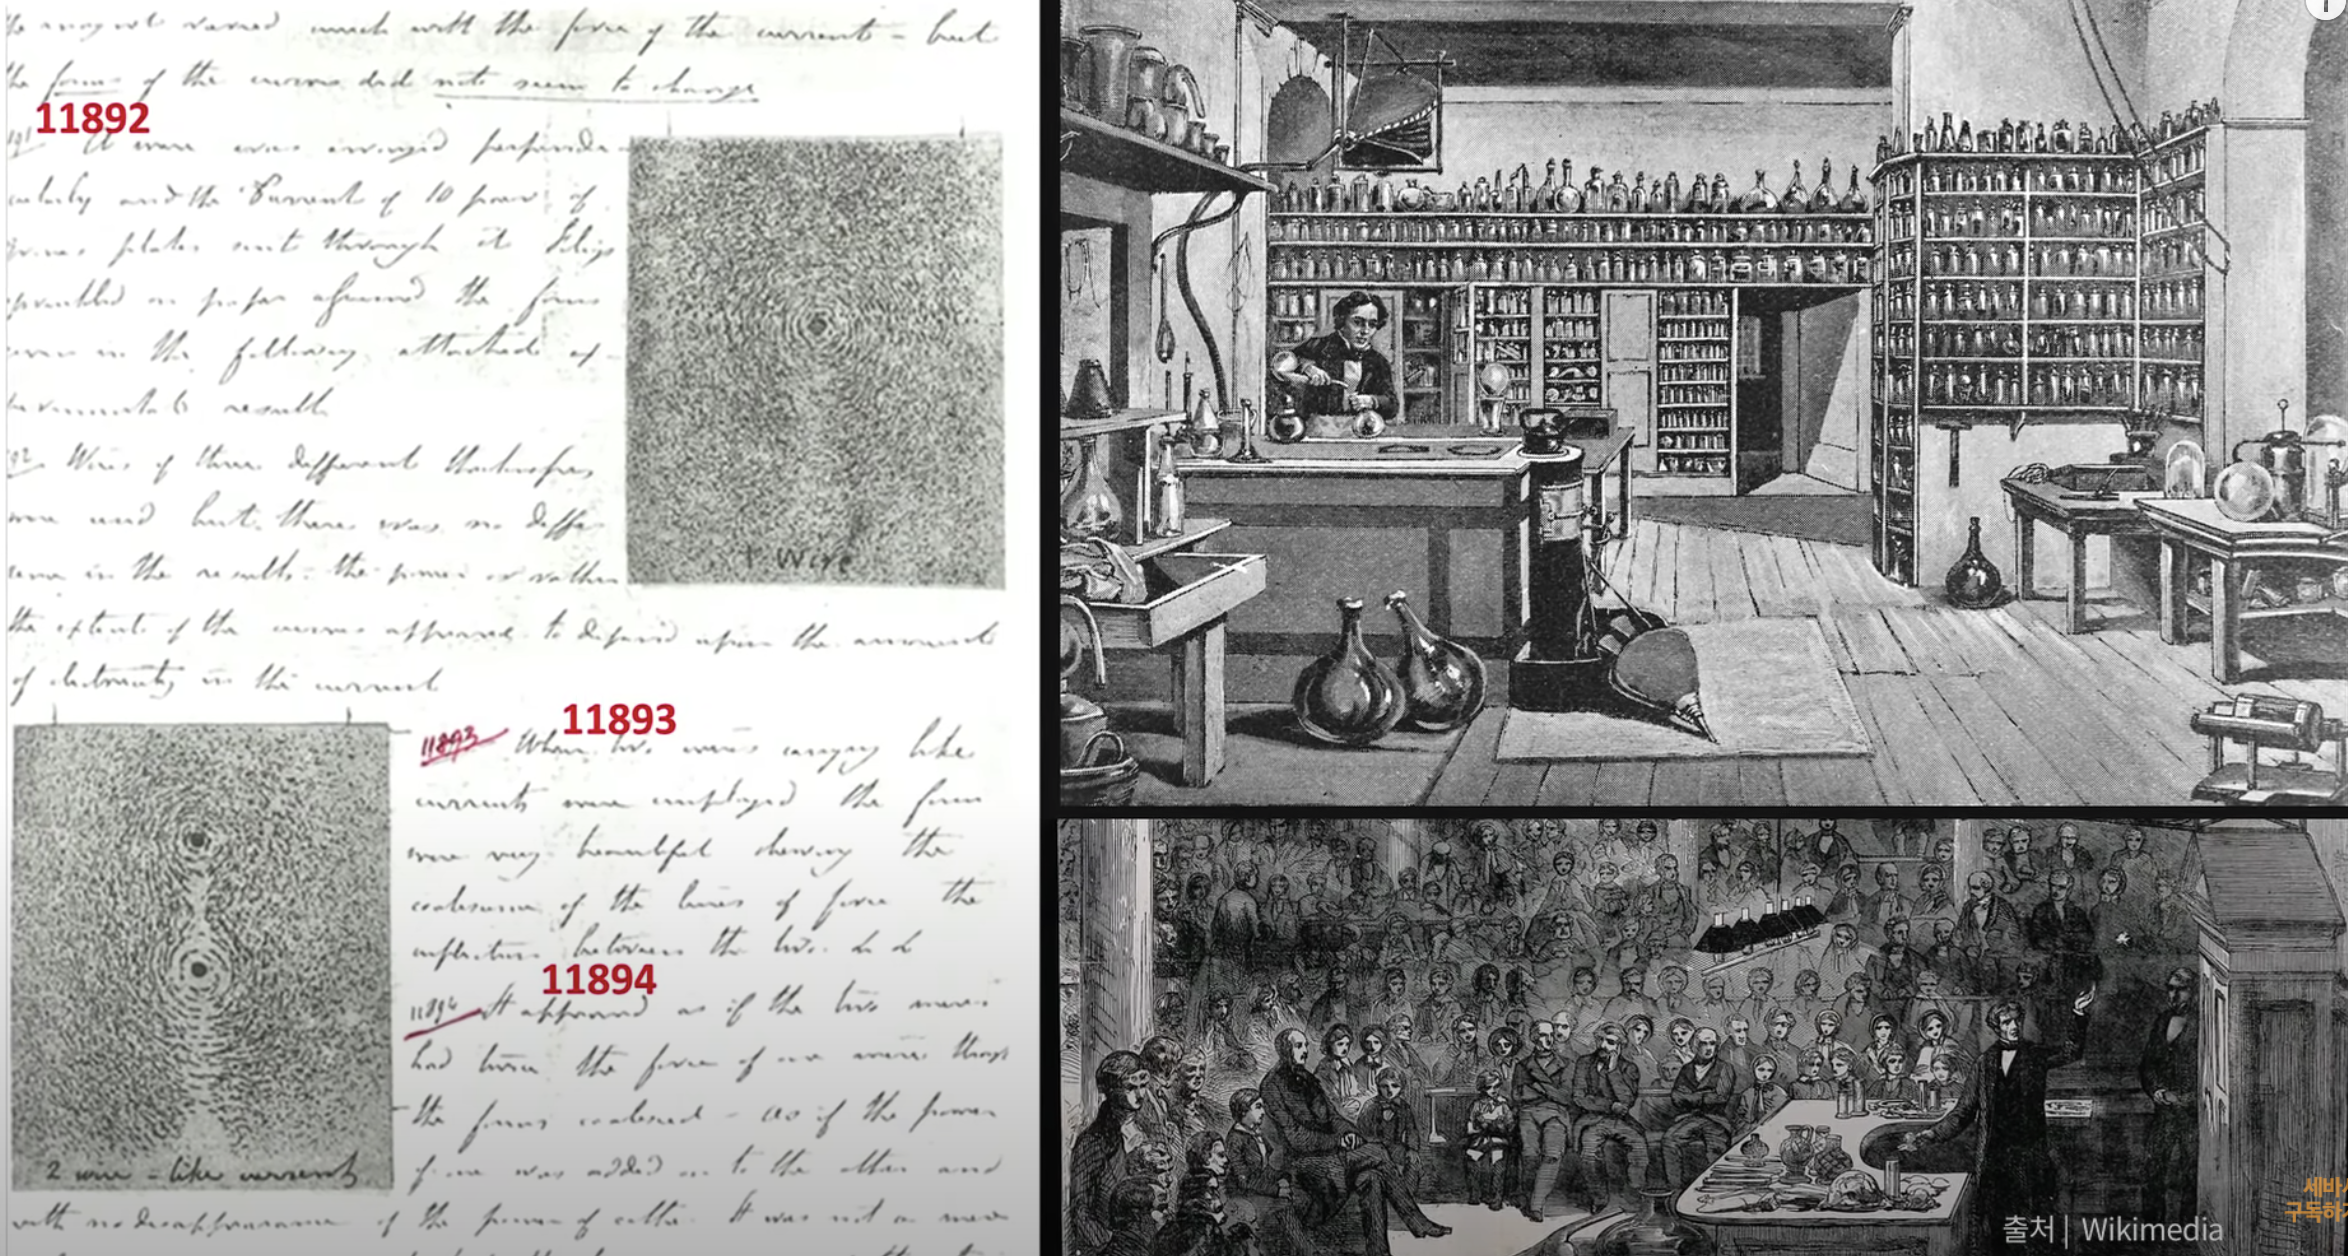 much with the force of the current - but
the form of the curves did not seem to change
11892
and the Current of 10 pair of
plates sent through it
sprinkled on paper assumed the forms
in the following attached
results
Wires of three different thicknesses
were used but there was no diffe
in the results - the power or rather
the extent of the curves appeared to depend upon the amount
of electricity in the current
1 Wire
11893
11893 When two wires carrying like
currents were employed the forms
were very beautiful shewing the
coalescence of the lines of force the
between the two
11894
11894 It appeared as if the two wires
had twice the force of one wire though
the forms coalesced - as if the power
of one was added on to the other and
with no disappearance of the power of either. It was not a mere
2 wire - like currents
세바시
구독하기
출처 | Wikimedia